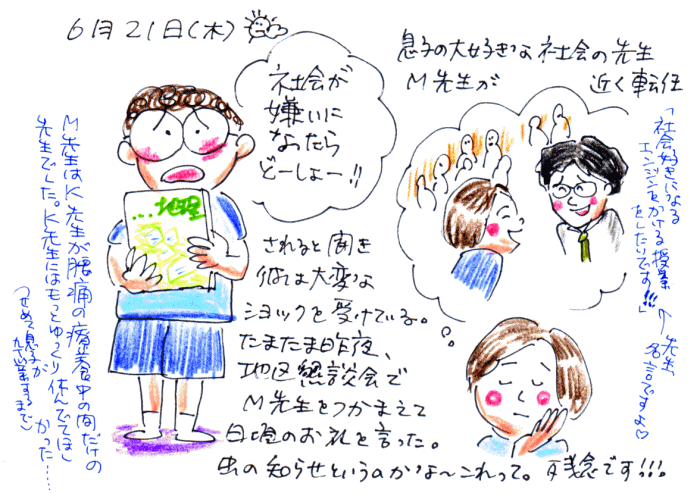 6月21日(木)
社会が
嫌いに
なったら
どーしょー!!
地理
息子の大好きな社会の先生
M先生が 近く転任
されると聞き
彼は大変な
ショックを受けている。
たまたま昨夜、
地区懇談会で
M先生をつかまえて
日喰のお礼を言った。
虫の知らせというのかな〜これって。残念です!!!
「社会好きになる
エンジンをかける授業
をしたいです!!!」
↑先生
名言ですよ♡
M先生はK先生が腰痛の療養中の間だけの
先生でした。K先生にはもっとゆっくり休んでてほし
かった……
(せめて息子が
卒業するまで)